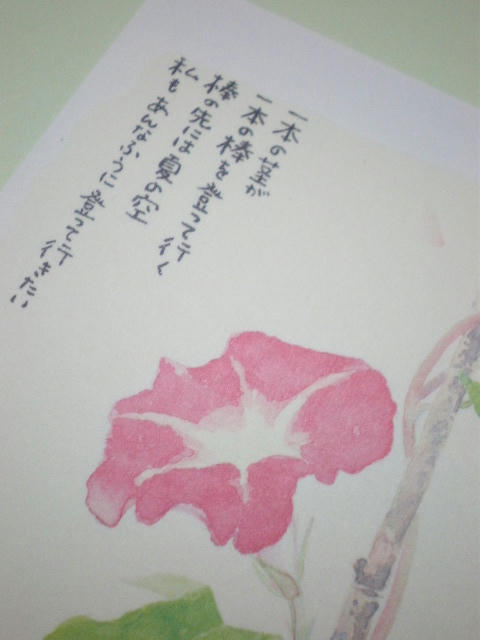 一本の茎が
一本の棒を登って行く
棒の先には夏の空
私もあんなふうに登って行きたい